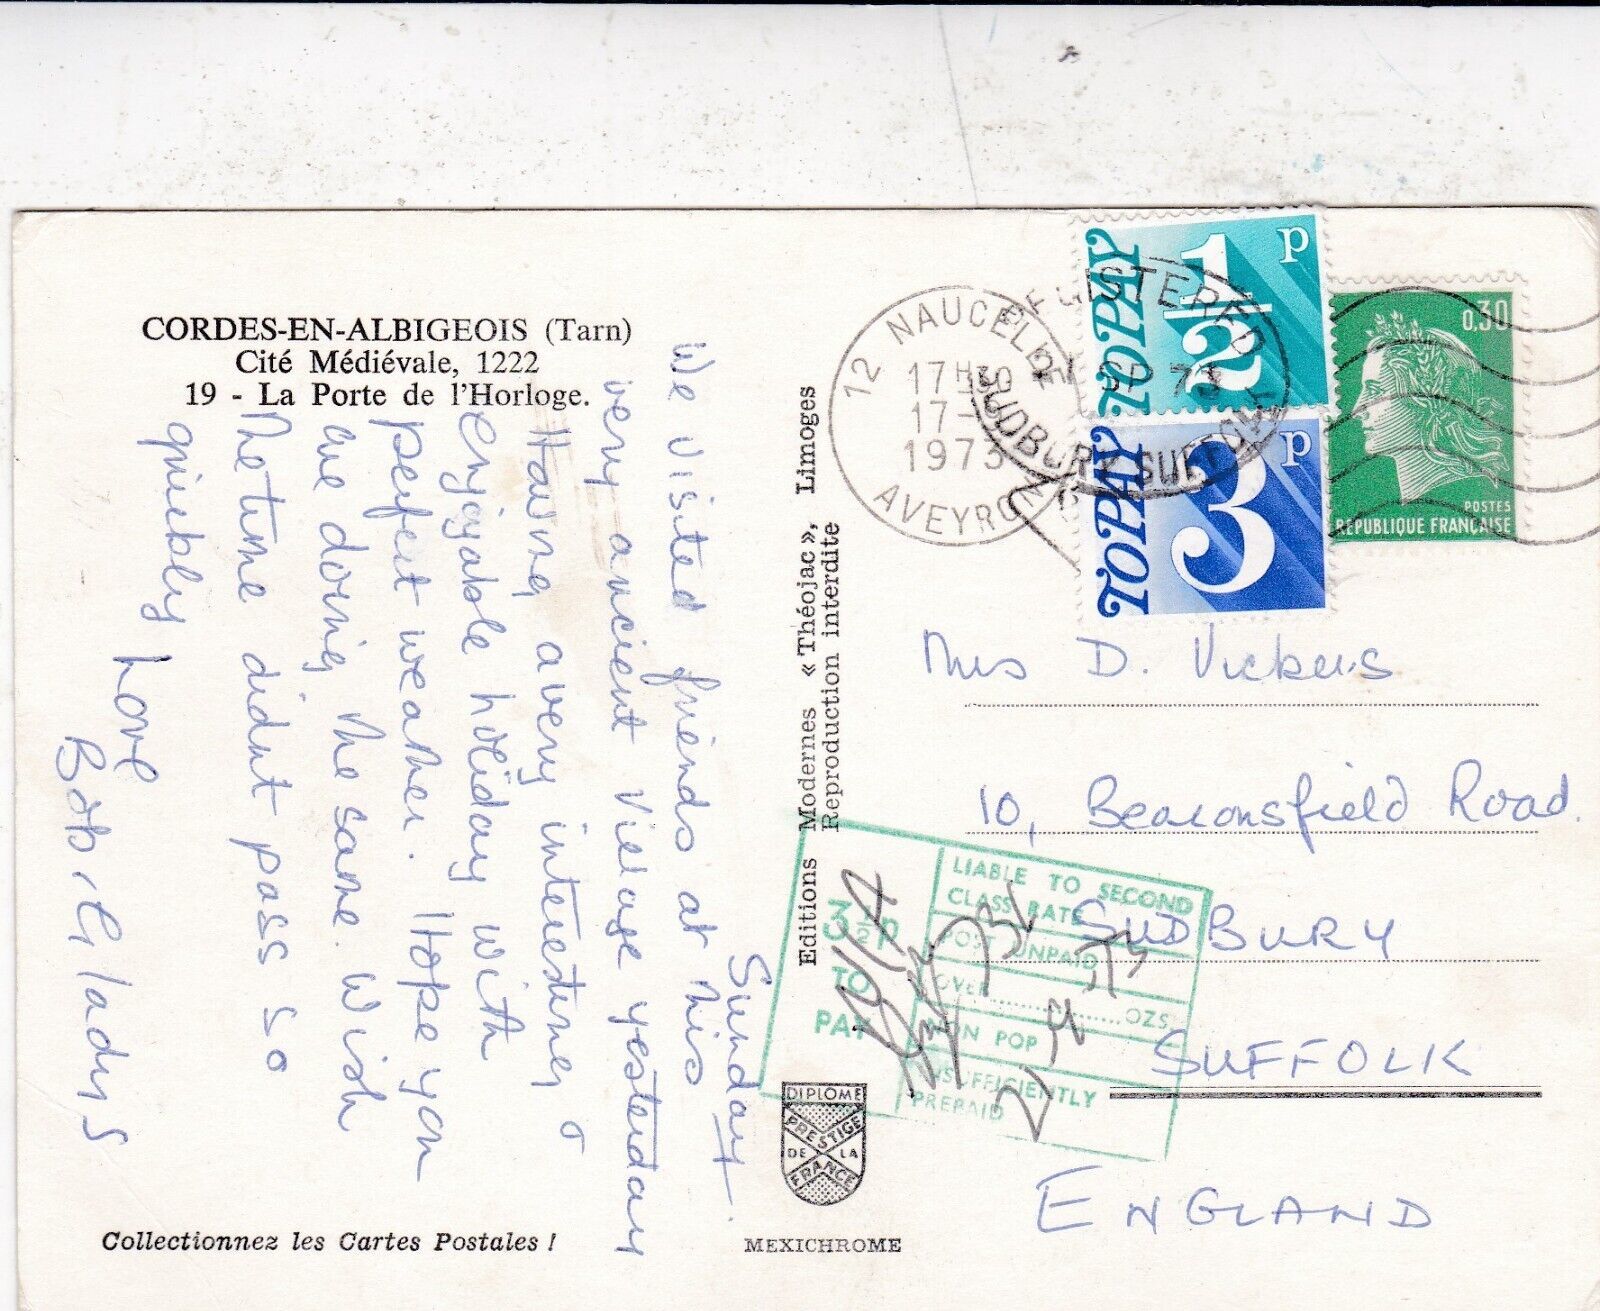 CORDES-EN-ALBIGEOIS (Tarn)
Cité Médiévale, 1222
19 - La Porte de l'Horloge.
Sunday.
We visited friends at this
very ancient Village yesterday
Having a very interesting &
enjoyable holiday with
perfect weather. Hope you
are doing the same. Wish
the time didnt pass so
quickly
Love
Bob & Gladys
Collectionnez les Cartes Postales !
Editions Modernes « Théojac », Limoges
Reproduction interdite
DIPLOME
PRESTIGE
DE LA
FRANCE
MEXICHROME
12 NAUCELLE
17H30
17-
1973
AVEYRON
REGISTERED
SP 73
SUDBURY SUFFOLK
TO PAY
1/2 p
TO PAY
3 p
0,30
POSTES
REPUBLIQUE FRANÇAISE
Mrs D. Vickers
10, Beaconsfield Road.
SUDBURY
SUFFOLK
ENGLAND
3½p
TO
PAY
LIABLE TO SECOND
CLASS RATE
POST UNPAID
OVER............OZS
NON POP
INSUFFICIENTLY
PREPAID